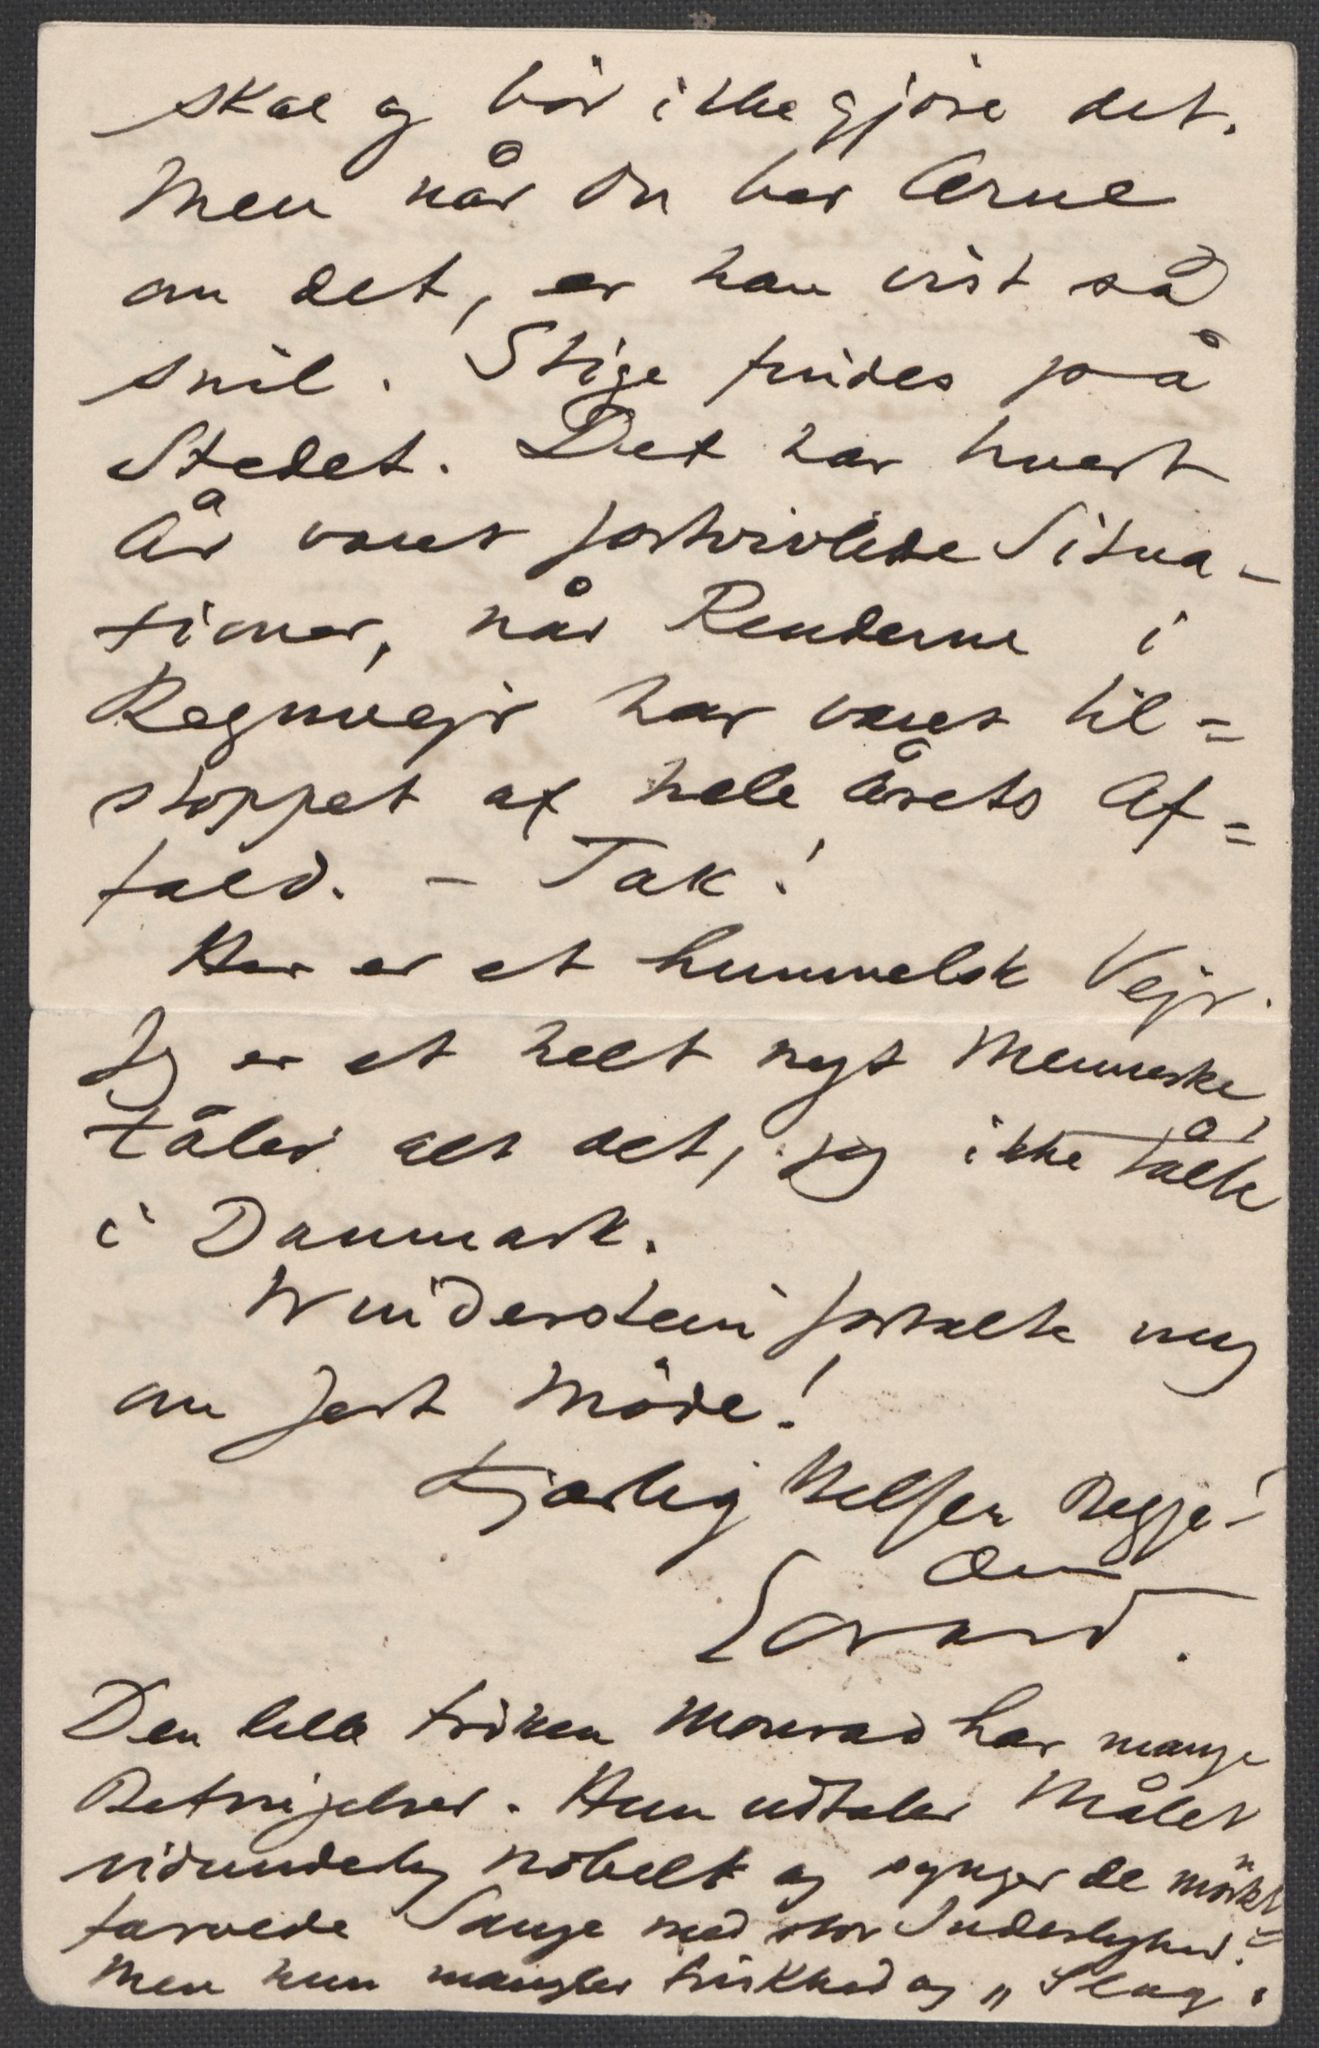 skal og bör ikke gjöre det.
Men når Du ber Arne
om det, er han vist så
snil. Stige findes på
Stedet. Det har hvert
År været fortvivlede Situa-
tioner, når Renderne i
Regnvejr har været til=
stoppet af hele Årets Af=
fald. – Tak!
Her er et himmelsk Vejr.
Jeg er et helt nyt Menneske,
tåler alt det, jeg ikke tålte
i Danmark.
Winderstein fortalte mig
om Jert Möde!
Kjærlig Hilsen begge!
Din
Edvard.
Den lille fröken Monrad har mange
Betingelser. Hun udtaler Målet
vidunderlig nobelt og synger de mörkt=
farvede Sange med stor Inderlighed.
Men hun mangler friskhed og „Slag".